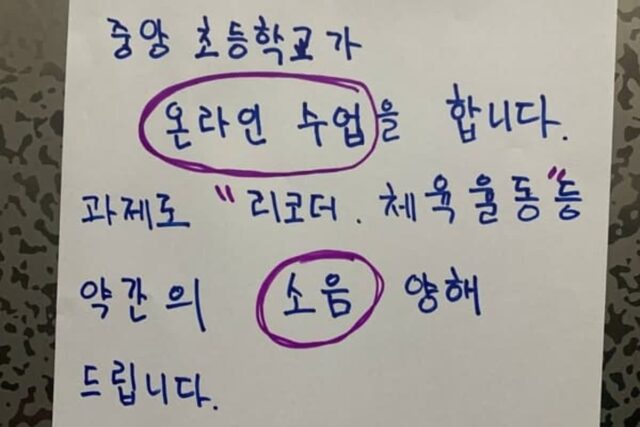 중앙 초등학교가
온라인 수업을 합니다.
과제로 "리코더. 체육율동"등
약간의 소음 양해
드립니다.